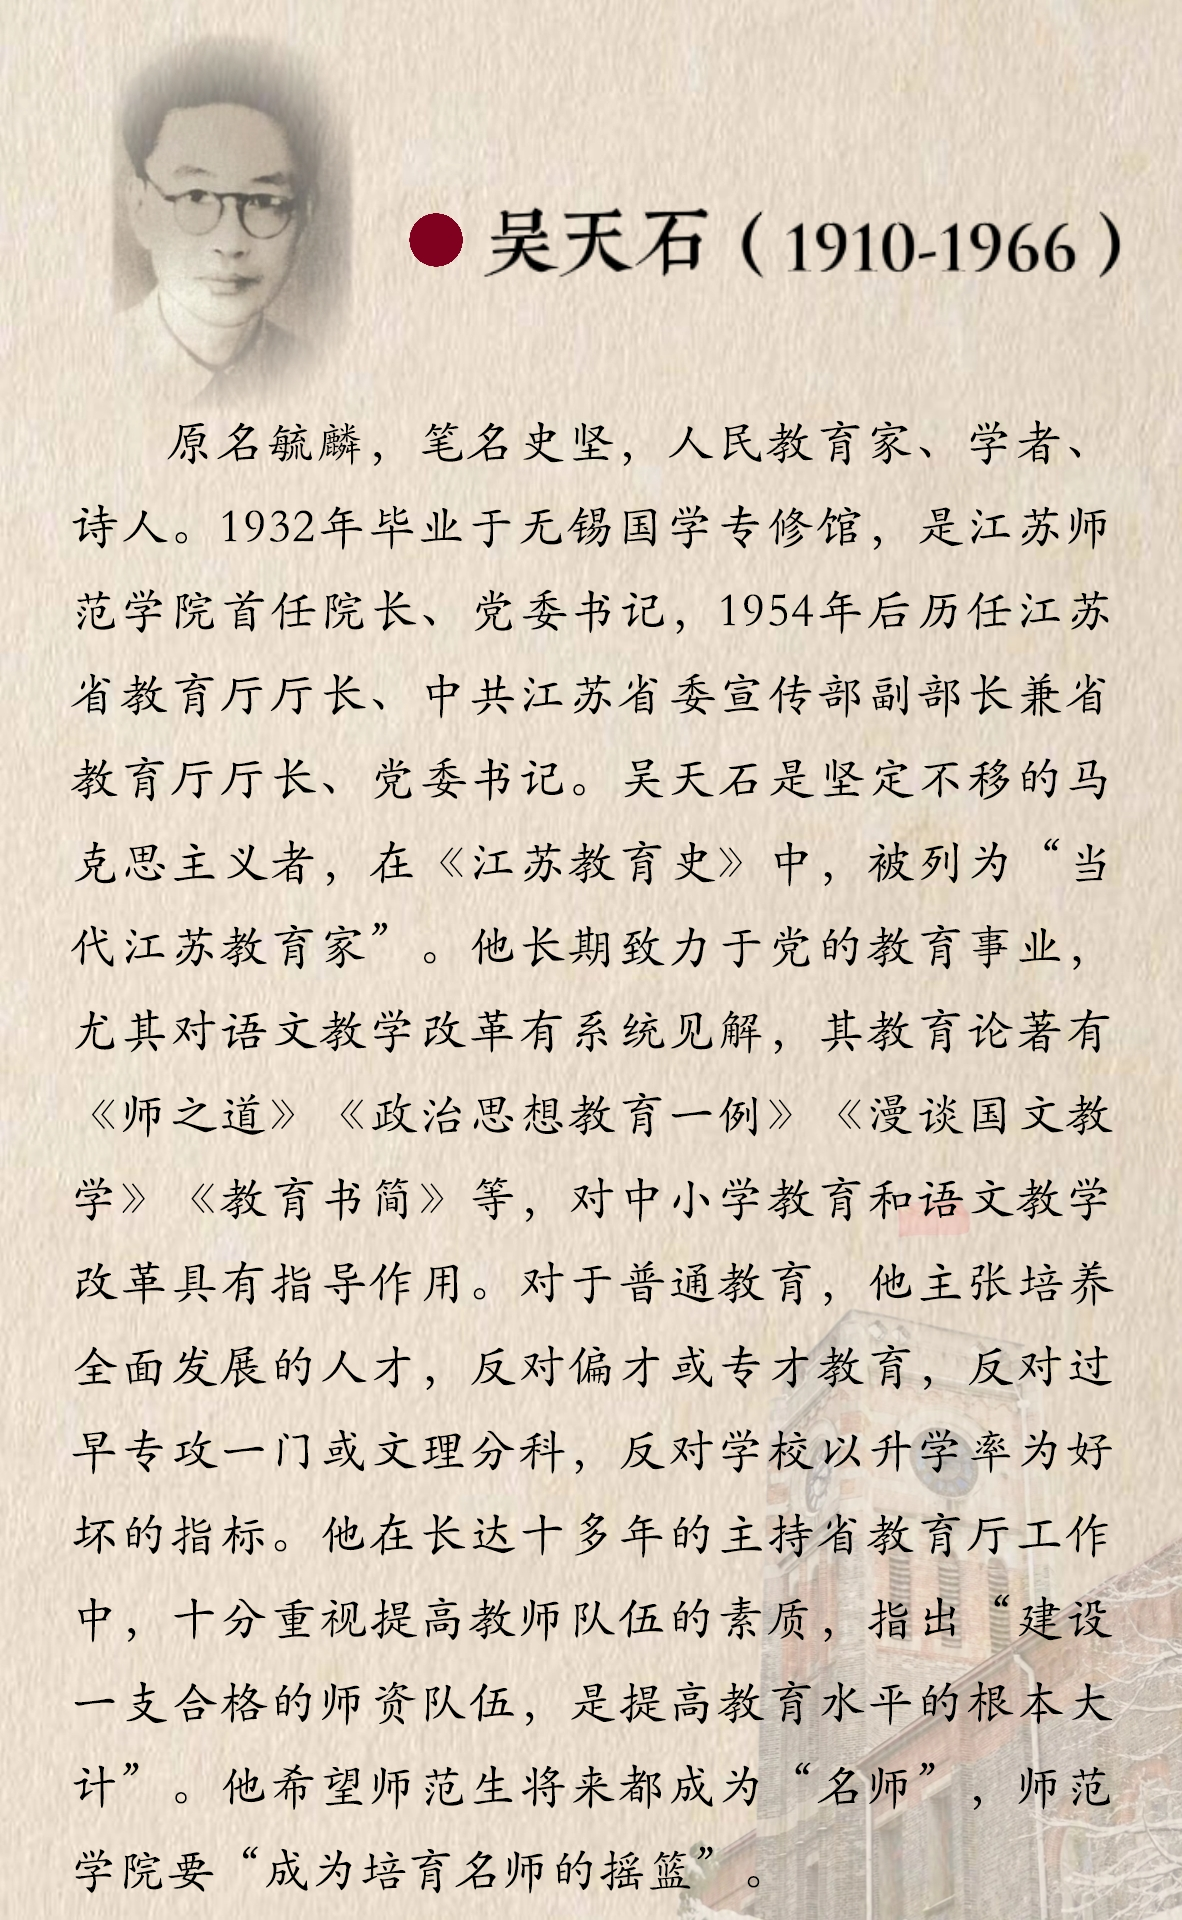 吴天石（1910-1966）
原名毓麟，笔名史坚，人民教育家、学者、
诗人。1932年毕业于无锡国学专修馆，是江苏师
范学院首任院长、党委书记，1954年后历任江苏
省教育厅厅长、中共江苏省委宣传部副部长兼省
教育厅厅长、党委书记。吴天石是坚定不移的马
克思主义者，在《江苏教育史》中，被列为“当
代江苏教育家”。他长期致力于党的教育事业，
尤其对语文教学改革有系统见解，其教育论著有
《师之道》《政治思想教育一例》《漫谈国文教
学》《教育书简》等，对中小学教育和语文教学
改革具有指导作用。对于普通教育，他主张培养
全面发展的人才，反对偏才或专才教育，反对过
早专攻一门或文理分科，反对学校以升学率为好
坏的指标。他在长达十多年的主持省教育厅工作
中，十分重视提高教师队伍的素质，指出“建设
一支合格的师资队伍，是提高教育水平的根本大
计”。他希望师范生将来都成为“名师”，师范
学院要“成为培育名师的摇篮”。